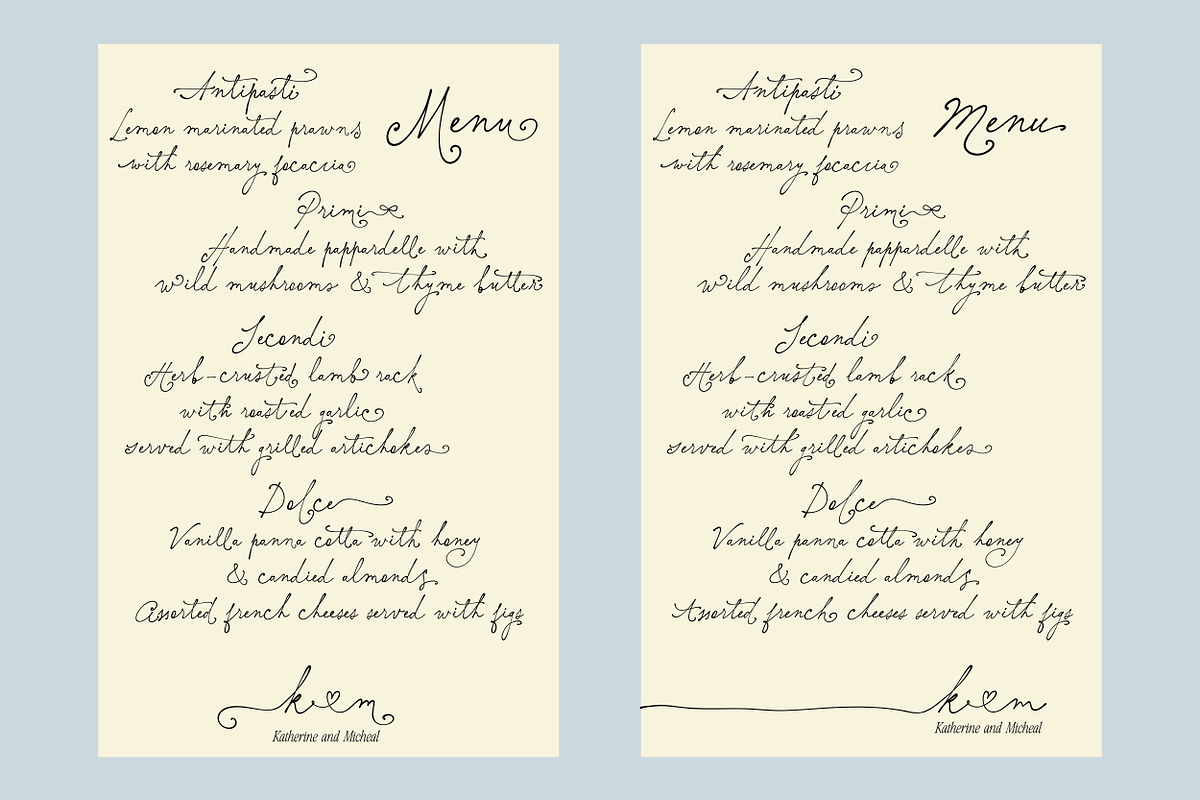 Antipasti
Menu
Lemon marinated prawns
with rosemary focaccia
Primi
Handmade pappardelle with
wild mushrooms & thyme butter
Secondi
Herb-crusted lamb rack
with roasted garlic
served with grilled artichokes
Dolce
Vanilla panna cotta with honey
& candied almonds
Assorted french cheeses served with figs
k m
Katherine and Micheal
Antipasti
Menu
Lemon marinated prawns
with rosemary focaccia
Primi
Handmade pappardelle with
wild mushrooms & thyme butter
Secondi
Herb-crusted lamb rack
with roasted garlic
served with grilled artichokes
Dolce
Vanilla panna cotta with honey
& candied almonds
Assorted french cheeses served with figs
k m
Katherine and Micheal